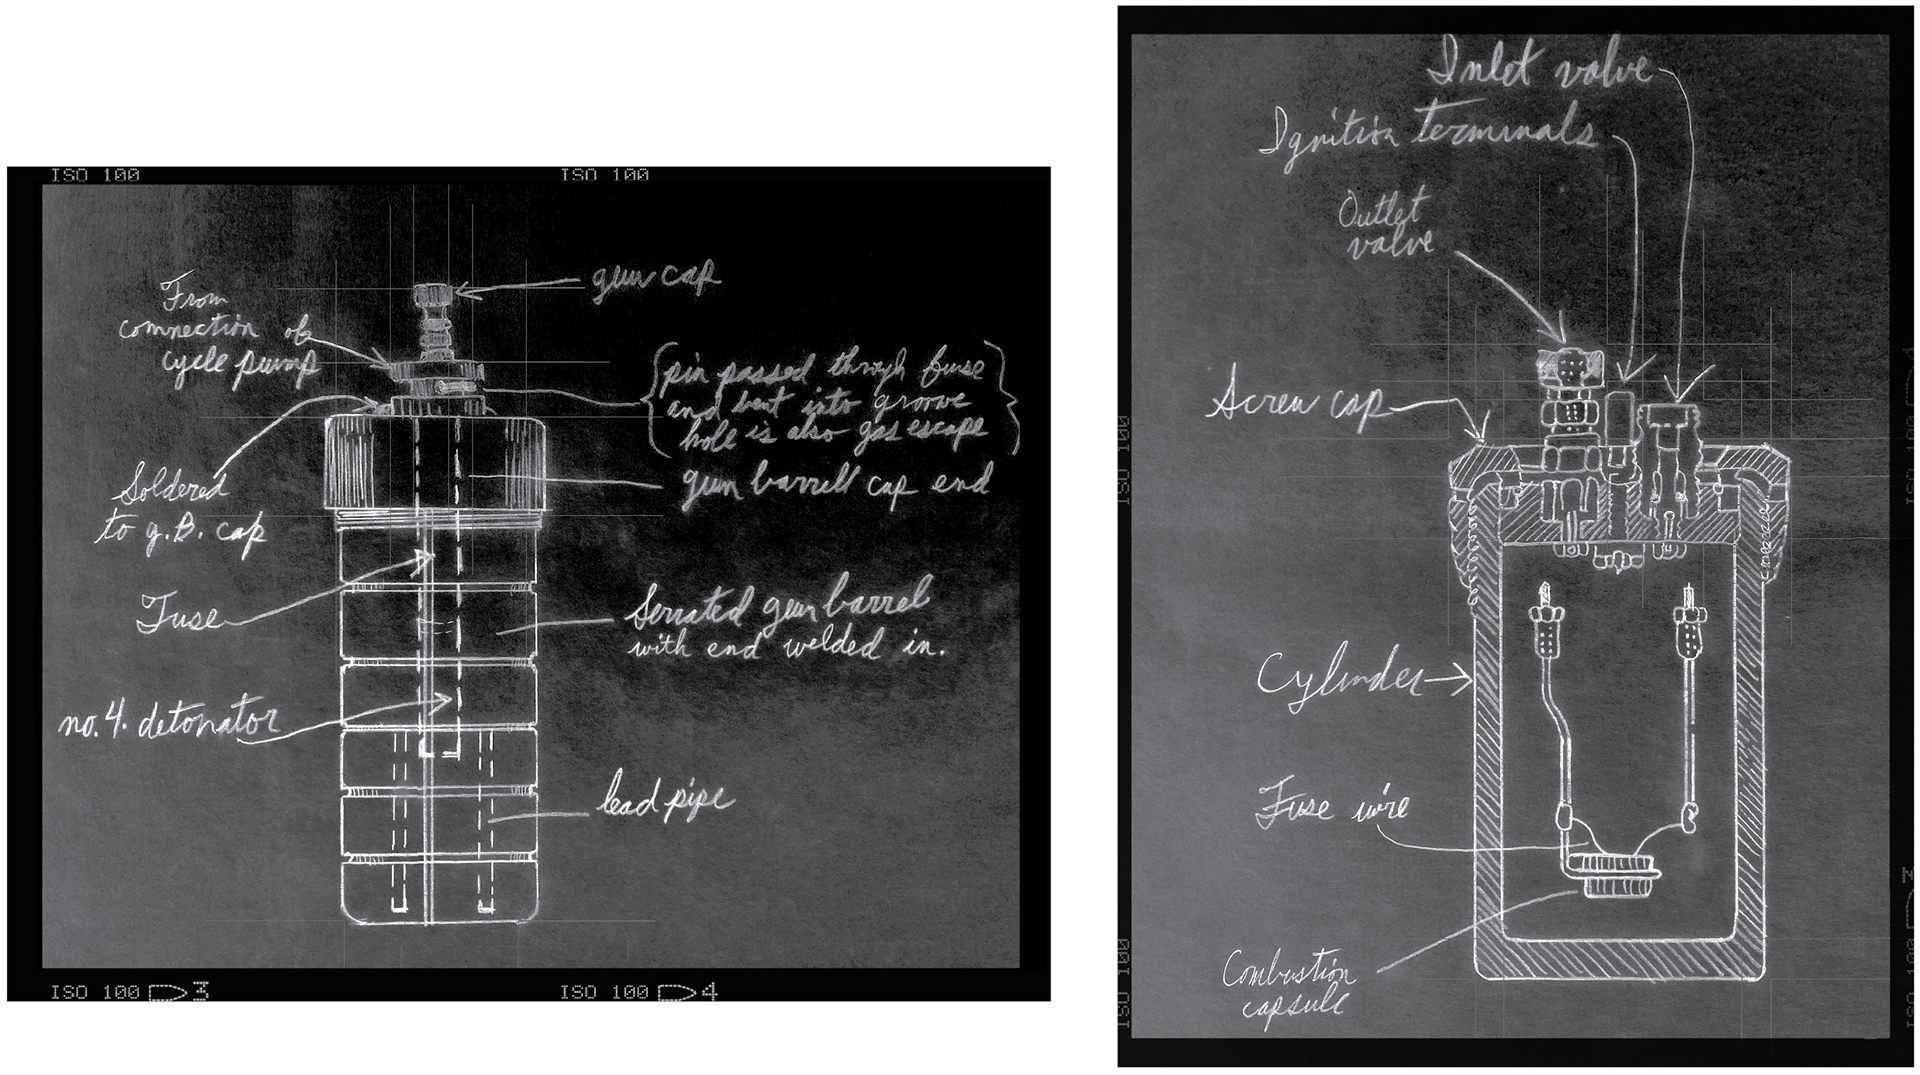 ISO 100
ISO 100
gun cap
From
connection of
cycle pump
pin passed through fuse
and bent into groove
hole is also gas escape
gun barrell cap end
Soldered
to g.B. cap
Fuse
Serrated gun barrel
with end welded in.
no.4. detonator
lead pipe
ISO 100 3
ISO 100 4
Inlet valve
Ignition terminals
Outlet
valve
Screw cap
Cylinder
Fuse wire
Combustion
capsule
ISO 100
ISO 100
ISO 100
ISO 100